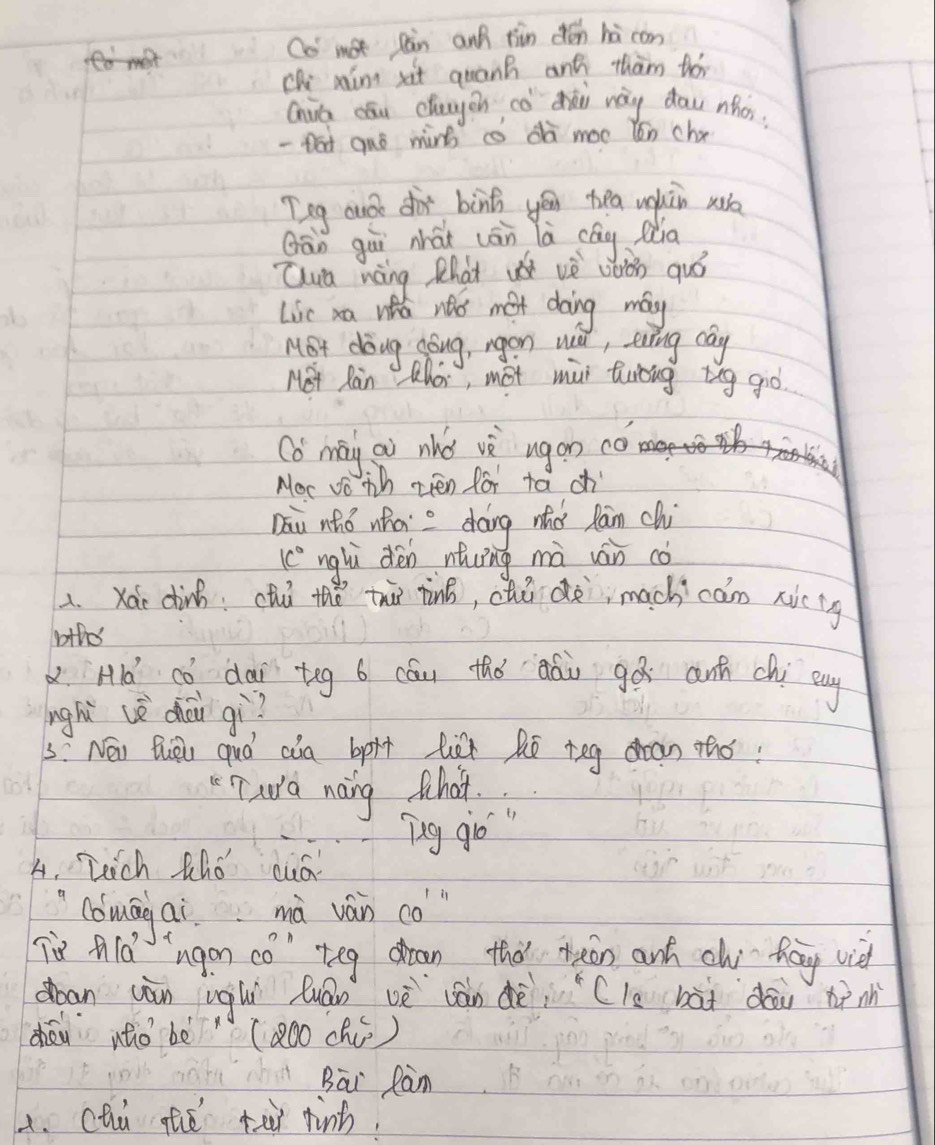 Có một
Có một lần anh tìm đến hà con
Chị núm xít quanh anh thăm hỏi
Giữa câu chuyện có điều này đau nhói:
- Đất quê mình có đá mọc lên chx
Trg cuộc đời bình yên tựa nghìn xưa
Gần gũi nhất vẫn là cây lúa
Trưa nắng khát ước về vườn quả
Lúc xa nhà nhớ một dáng mây
Một dòng sông, ngọn núi, rừng cây
Một làn khói, một mùi hương trg gió.
Có mấy ai nhớ về ngọn cỏ
Mọc vô tình trên lối ta đi
Dẫu nhỏ nhoi dáng nhớ làm chi
K° nghĩ đến nhưng mà vẫn có
1. Xác định: chủ thể trữ tình, chủ đề, mạch cảm xúc trg
bthơ
2. H/a cỏ dại trg 6 câu thơ đầu gợi anh chị suy
nghĩ về điều gì?
3. Nêu hiệu quả của bptt liệt kê trg đoạn thơ:
"Trưa nắng khát...
.... Trg gió"
4. Trích khổ cuối
"Có mấy ai... mà vẫn có"
Từ h/a "ngọn cỏ" trg đoạn thơ trên anh chị hãy viết
đoạn văn nghị luận về vấn đề: "C/s bắt đầu từ nh~
điều nhỏ bé" (200 chữ)
Bài làm
1. Chủ thể trữ tình: